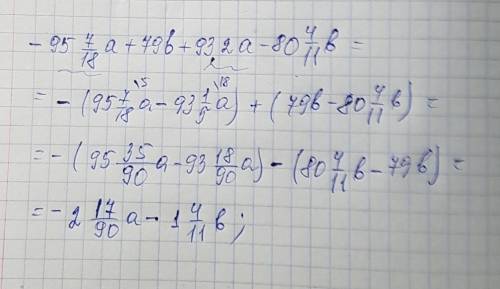 - 95 7/18 a + 79b + 93,2a - 80 4/11 b =
= - (95 7/18 \5 a - 93 1/5 \18 a) + (79b - 80 4/11 b) =
= - (95 35/90 a - 93 18/90 a) - (80 4/11 b - 79b) =
= - 2 17/90 a - 1 4/11 b;